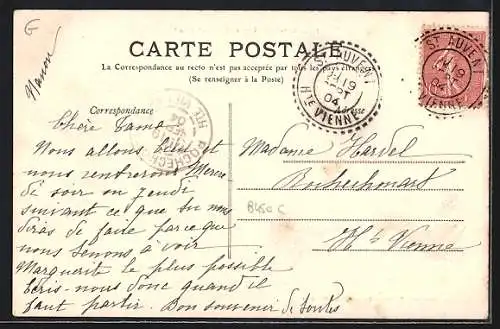 G
Manon
CARTE POSTALE
La Correspondance au recto n'est pas acceptée par tous les pays étrangers
(Se renseigner à la Poste)
Correspondance
Adresse
ST AUVENT
19
04
HTE VIENNE
ST AUVENT
19
04
VIENNE
ROCHECH
HTE VIE
04
Chère
Nous allons bien et
nous rentrerons Mercre
di soir ou jeudi
suivant ce que tu nous
diras de faire parce que
nous tenons à voir
Marguerite le plus possible
Écris-nous donc quand il
faut partir. Bon souvenir de toutes
Madame Hardel
Rochechouart
Hte Vienne